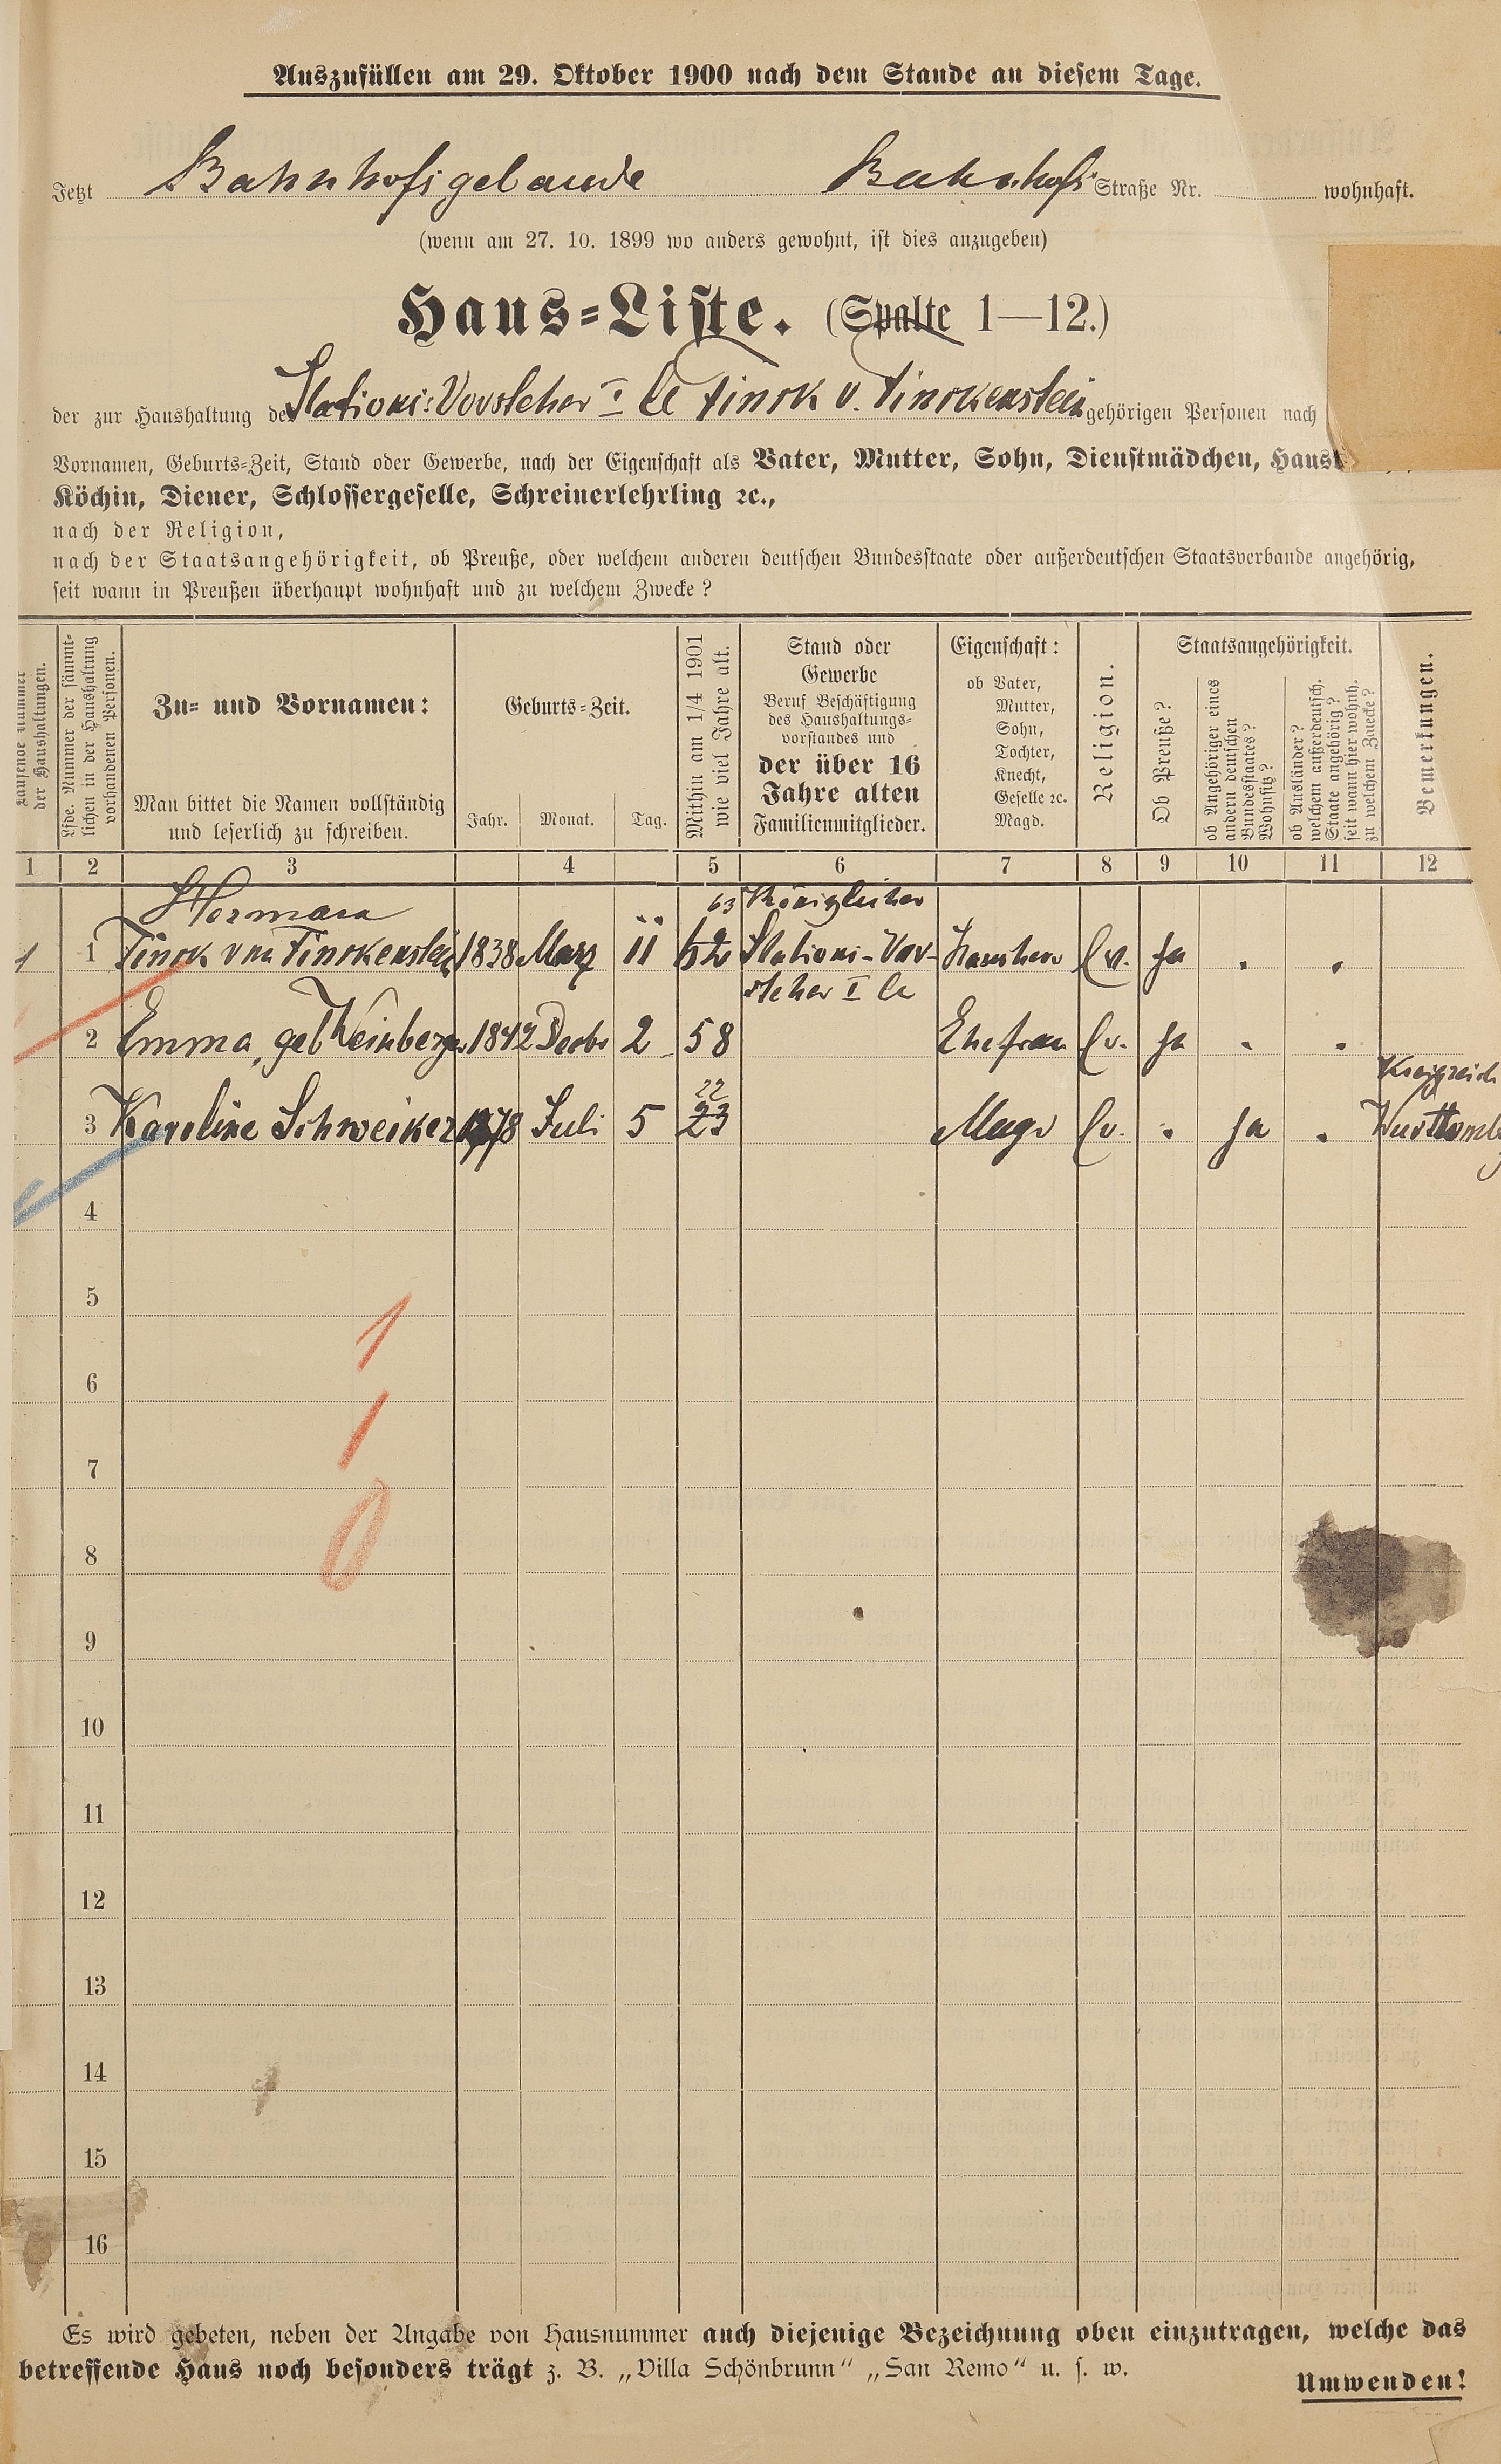 Auszufüllen am 29. Oktober 1900 nach dem Stande an diesem Tage.
Jetzt Bahnhofsgebäude Bahnhofs Straße Nr. wohnhaft.
(wenn am 27. 10. 1899 wo anders gewohnt, ist dies anzugeben)
Haus-Liste. (Spalte 1—12.)
der zur Haushaltung des Stations-Vorsteher I Cl Finck v. Finckenstein gehörigen Personen nach
Vornamen, Geburts-Zeit, Stand oder Gewerbe, nach der Eigenschaft als Vater, Mutter, Sohn, Dienstmädchen,
Köchin, Diener, Schlossergeselle, Schreinerlehrling ꝛc.,
nach der Religion,
nach der Staatsangehörigkeit, ob Preuße, oder welchem anderen deutschen Bundesstaate oder außerdeutschen Staatsverbande angehörig,
seit wann in Preußen überhaupt wohnhaft und zu welchem Zwecke?
Laufende Nummer
der Haushaltungen.
Lfde. Nummer der sämmt-
lichen in der Haushaltung
vorhandenen Personen.
Zu- und Vornamen:
Man bittet die Namen vollständig
und leserlich zu schreiben.
Geburts-Zeit.
Jahr. Monat. Tag.
Mithin am 1/4 1901
wie viel Jahre alt.
Stand oder
Gewerbe
Beruf Beschäftigung
des Haushaltungs-
vorstandes und
der über 16
Jahre alten
Familienmitglieder.
Eigenschaft:
ob Vater,
Mutter,
Sohn,
Tochter,
Knecht,
Geselle ꝛc.
Magd.
Religion.
Staatsangehörigkeit.
Ob Preuße?
ob Angehöriger eines
andern deutschen
Bundesstaates?
Wohnsitz?
ob Ausländer?
welchem außerdeutsch.
Staate angehörig?
seit wann hier wohnh.
zu welchem Zwecke?
Bemerkungen.
1 2 3 4 5 6 7 8 9 10 11 12
Hermann 63 Königlicher
1 1 Finck von Finckenstein 1838 März 11 62 Stations-Vor- Hausherr Ev. Ja
steher I Cl
2 Emma, geb Weinberger 1842 Decbr 2 58 Ehefrau Ev. Ja
22 Königreich
3 Karoline Schweiker 1878 Juli 5 23 Magd Ev. Ja Württemb
4
5
1
6
1
7
0
8
9
10
11
12
13
14
15
16
Es wird gebeten, neben der Angabe von Hausnummer auch diejenige Bezeichnung oben einzutragen, welche das
betreffende Haus noch besonders trägt z. B. „Villa Schönbrunn“ „San Remo“ u. s. w.
Umwenden!